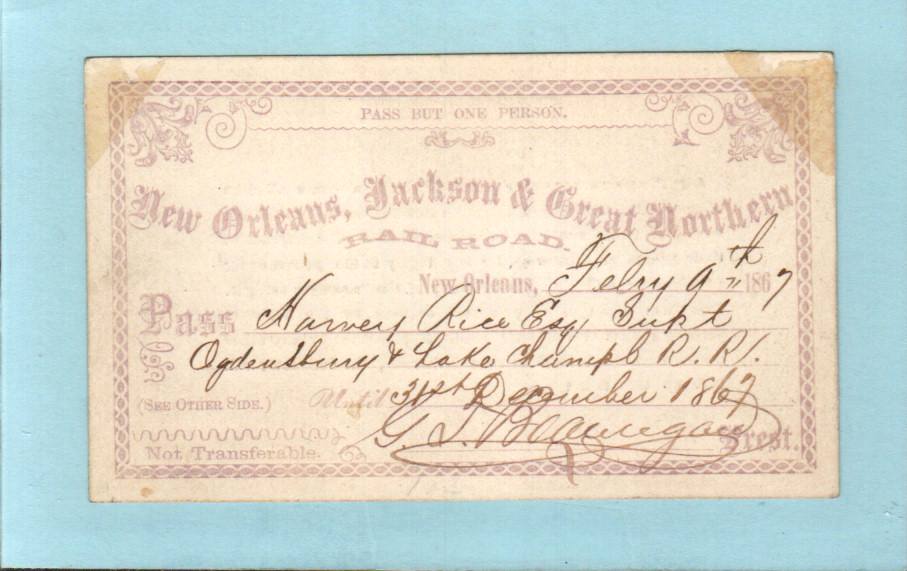 PASS BUT ONE PERSON.
New Orleans, Jackson & Great Northern
RAIL ROAD.
New Orleans, Feby 9th 1867
Pass Harvey Rice Esq Supt
Ogdensburg & Lake Champl R. R.
(SEE OTHER SIDE.) Until 31st December 1867
G. T. Beauregard Prest.
Not Transferable.